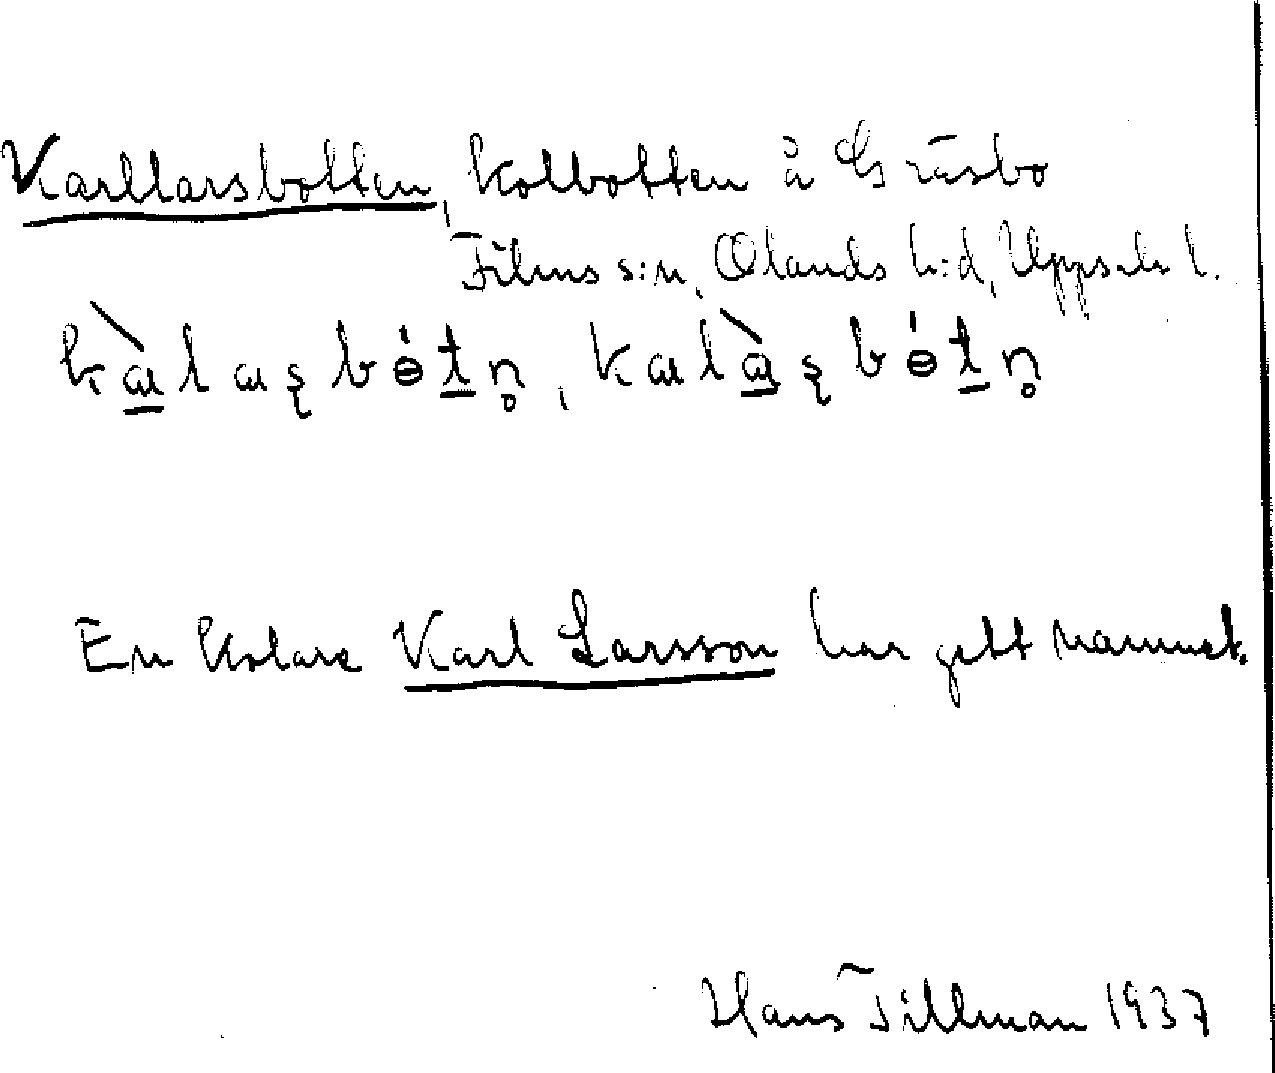 Karllarsbotten, kolbotten å Gräsbo
Films s:n, Olands h:d, Uppsala l.
kàlaşbötn̥, kalàşbötn̥
En kolare Karl Larsson har gett namnet.
Hans Tillman 1937